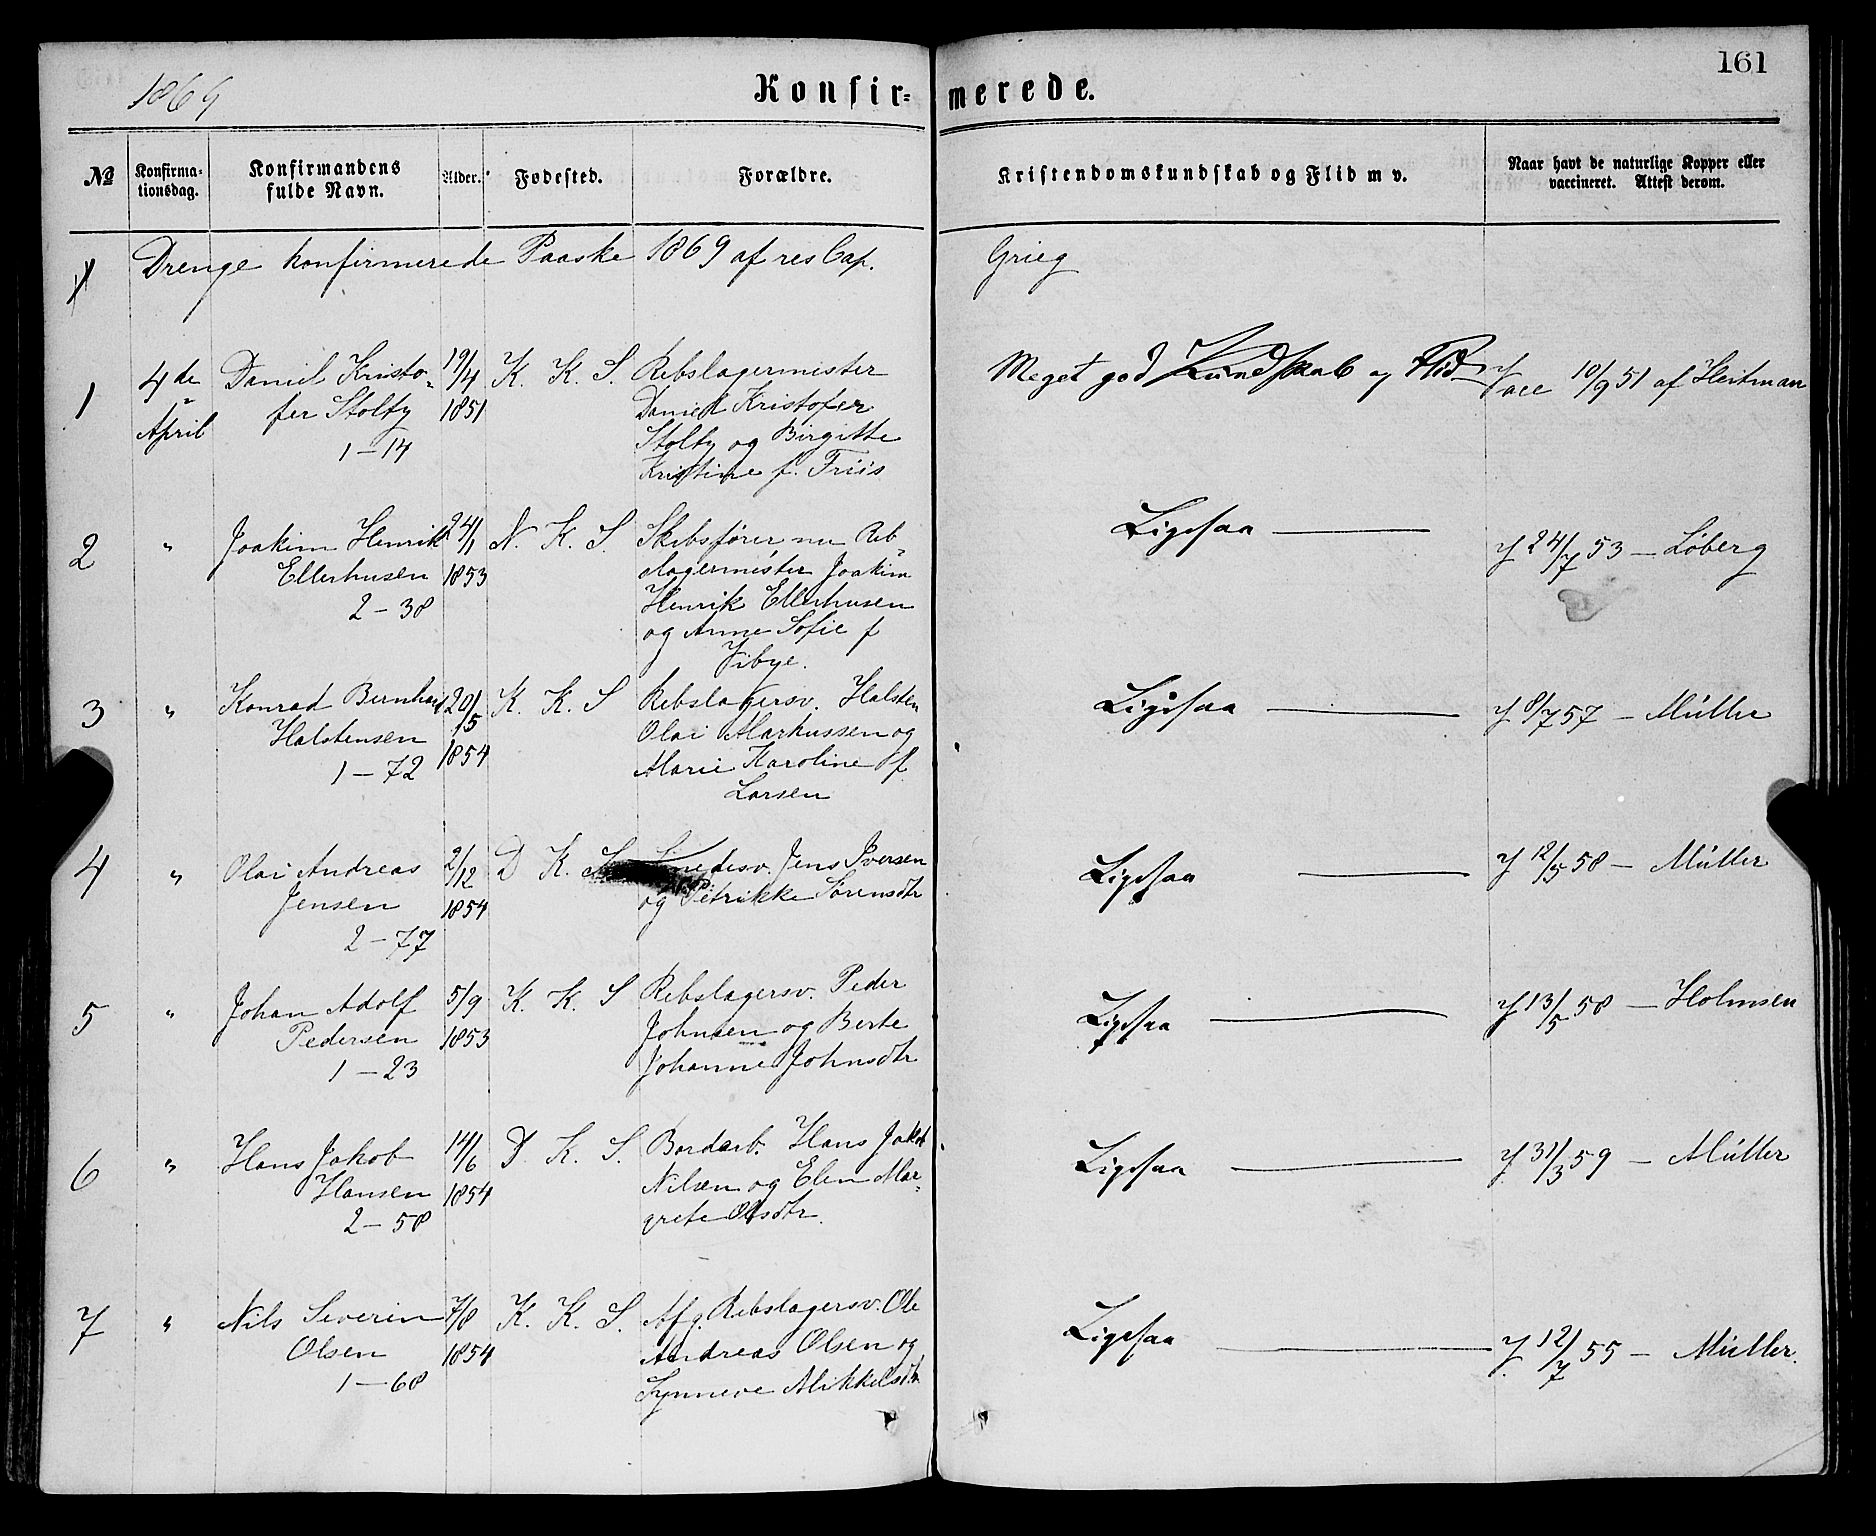 161
1869
Konfirmerede.
№
Konfirmationsdag.
Konfirmandens fulde Navn.
Alder.
Fødested.
Forældre.
Kristendomskundskab og Flid m v.
Naar havt de naturlige Kopper eller vaccineret. Attest derom.
Drenge konfirmerede Paaske 1869 af res Cap. Grieg
1
4de April
Daniel Kristo-
fer Stolty
1-14
19/4
1851
K. K. S.
Rebslagermester
Daniel Kristofer
Stolty og Birgitte
Kristine f. Friis
Meget god Kundskab og Flid
Vacc 10/9 51 af Heitman
2
"
Joakim Henrik
Ellerhusen
2-38
24/1
1853
N. K. S.
Skibsfører nu Reb-
slagermester Joakim
Henrik Ellerhusen
og Anne Sofie f
Vibye.
Ligesaa
24/7 53 – Løberg
3
"
Konrad Bernhard
Halstensen
1-72
20/5
1854
K. K. S
Rebslagersv. Halsten
Olai Markussen og
Marie Karoline f.
Larsen
Ligesaa
8/7 57 – Müller
4
"
Olai Andreas
Jensen
2-77
2/12
1854
D K. S
Smedesv. Jens Iversen
og Petrikke Sørensdtr
Ligesaa
12/5 58 – Müller
5
"
Johan Adolf
Pedersen
1-23
5/9
1853
K. K. S
Rebslagersv. Peder
Johnsen og Berte
Johanne Johnsdtr
Ligesaa
13/5 58 – Holmsen
6
"
Hans Jakob
Hansen
2-58
14/6
1854
D. K. S.
Bordarb. Hans Jakob
Nilsen og Elen Mar-
grete Olsdtr.
Ligesaa
31/3 59 – Müller
7
"
Nils Severin
Olsen
1-68
7/8
1854
K. K. S.
Afg. Rebslagersv. Ole
Andreas Olsen og
Synneve Mikkelsdtr
Ligesaa
12/7 55 – Müller.